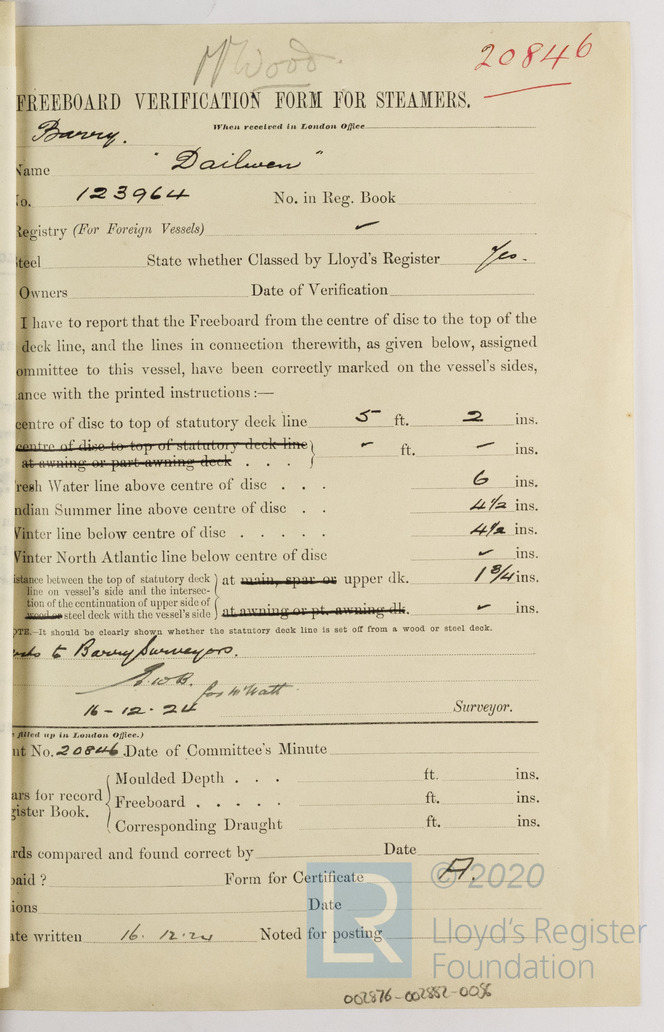 Wood.
20846
FREEBOARD VERIFICATION FORM FOR STEAMERS.
When received in London Office
Barry.
Name "Dailwen"
No. 123964 No. in Reg. Book
Registry (For Foreign Vessels) ✓
Steel State whether Classed by Lloyd's Register Yes.
Owners Date of Verification
I have to report that the Freeboard from the centre of disc to the top of the
deck line, and the lines in connection therewith, as given below, assigned
ommittee to this vessel, have been correctly marked on the vessel's sides,
ance with the printed instructions:—
centre of disc to top of statutory deck line 5 ft. 2 ins.
centre of disc to top of statutory deck line
at awning or part awning deck . . . ✓ ft. — ins.
resh Water line above centre of disc . . . 6 ins.
ndian Summer line above centre of disc . . 4½ ins.
Winter line below centre of disc . . . . . 4½ ins.
Winter North Atlantic line below centre of disc ✓ ins.
istance between the top of statutory deck
line on vessel's side and the intersec-
tion of the continuation of upper side of
wood or steel deck with the vessel's side
at main, spar or upper dk. 1 3/4 ins.
at awning or pt. awning dk. ✓ ins.
OTE.—It should be clearly shown whether the statutory deck line is set off from a wood or steel deck.
to Barry Surveyors.
16-12-24 Surveyor.
filled up in London Office.)
nt No. 20846 Date of Committee's Minute
ars for record
gister Book.
Moulded Depth . . . ft. ins.
Freeboard . . . . . ft. ins.
Corresponding Draught ft. ins.
rds compared and found correct by Date
paid ? Form for Certificate A.
ions Date
ate written 16.12.24 Noted for posting
LR © 2020
Lloyd's Register
Foundation
002876-002882-0056